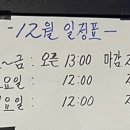 -12월 일정표-
~금: 오픈 13:00 마감
요일: 12:00
요일: 12:00